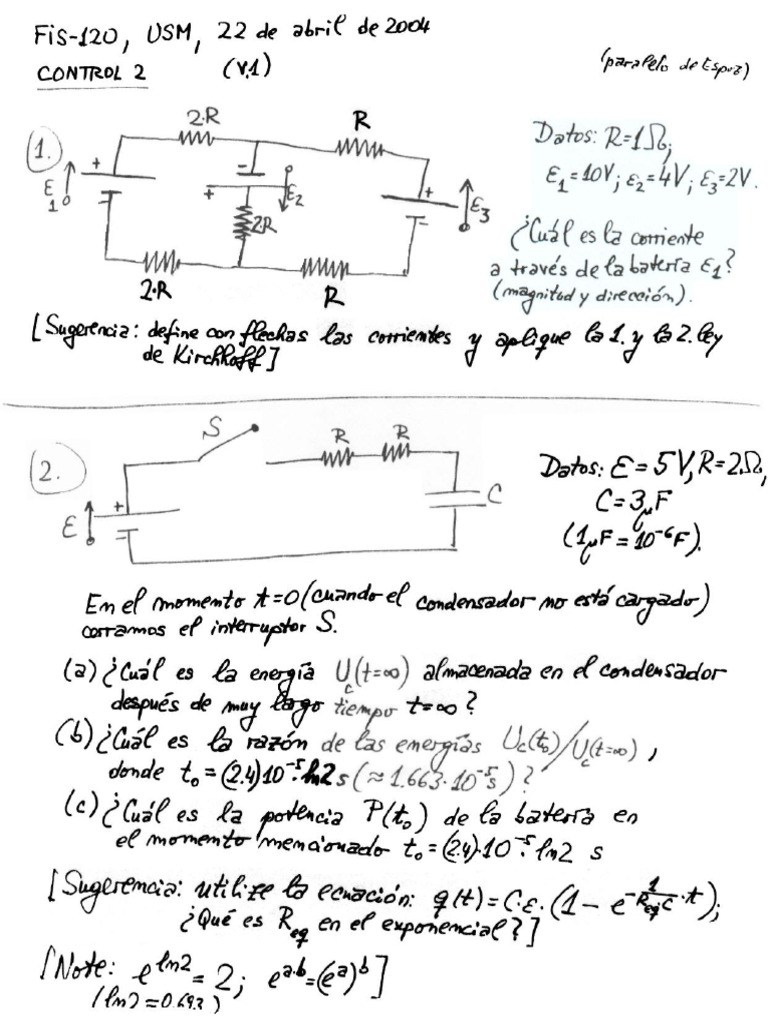 Fis-120, USM, 22 de abril de 2004
CONTROL 2 (v.1) (paralelo de Espoz)
1.
2·R
R
+
-
ε1
-
+
ε2
2R
+
-
ε3
2·R
R
Datos: R=1Ω;
ε1=10V; ε2=4V; ε3=2V.
¿Cuál es la corriente
a través de la batería ε1?
(magnitud y dirección).
[Sugerencia: define con flechas las corrientes y aplique la 1. y la 2. ley
de Kirchhoff]
2.
S
R R
+
-
ε
C
Datos: ε=5V, R=2Ω,
C=3μF
(1μF=10⁻⁶F).
En el momento t=0 (cuando el condensador no está cargado)
cerramos el interruptor S.
(a) ¿Cuál es la energía Uc(t=∞) almacenada en el condensador
después de muy largo tiempo t=∞?
(b) ¿Cuál es la razón de las energías Uc(t₀)/Uc(t=∞),
donde t₀=(2.4)10⁻⁵·ln2 s (≈1.663·10⁻⁵s)?
(c) ¿Cuál es la potencia P(t₀) de la batería en
el momento mencionado t₀=(2.4)·10⁻⁵·ln2 s
[Sugerencia: utilize la ecuación: q(t)=C·ε·(1-e^(-1/(Req C)·t));
¿Qué es Req en el exponencial?]
[Note: e^(ln2)=2; e^(a·b)=(e^a)^b]
(ln2=0.693)